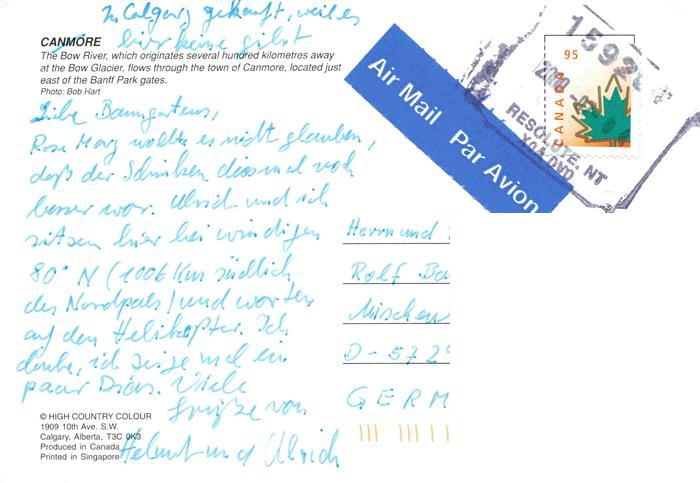 in Calgary gekauft, weil es
hier keine gibt
CANMORE
The Bow River, which originates several hundred kilometres away
at the Bow Glacier, flows through the town of Canmore, located just
east of the Banff Park gates.
Photo: Bob Hart
Liebe Baumgartens,
Rose Mary wollte es nicht glauben,
daß der Schinken diesmal noch
besser war. Ulrich und ich
sitzen hier bei windigen
80° N (1006 Km südlich
des Nordpols) und warten
auf den Helikopter. Ich
denke, ich zeige mal ein
paar Dias. Viele
Grüße von
Helmut und Ulrich
© HIGH COUNTRY COLOUR
1909 10th Ave. S.W.
Calgary, Alberta, T3C 0K3
Produced in Canada
Printed in Singapore
Air Mail Par Avion
95
CANADA
RESOLUTE, NT
X0A 0V0
Herrn und
Rolf Ba
Mischen
D-572
GERM